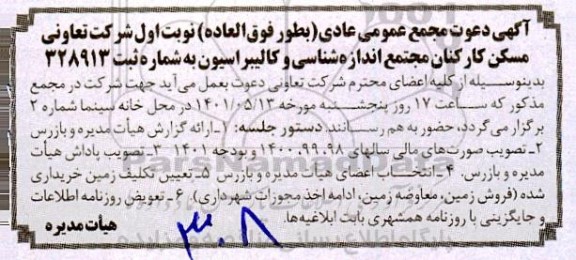 آگهی دعوت مجمع عمومی عادی (بطور فوق العاده) نوبت اول شرکت تعاونی
مسکن کارکنان مجتمع اندازه‌شناسی و کالیبراسیون به شماره ثبت ۳۲۸۹۱۳
بدینوسیله از کلیه اعضای محترم شرکت تعاونی دعوت بعمل می‌آید جهت شرکت در مجمع
مذکور که ساعت ۱۷ روز پنجشنبه مورخه ۱۴۰۱/۰۵/۱۳ در محل خانه سینما شماره ۲
برگزار می‌گردد، حضور به هم رسانند. دستور جلسه: ۱-ارائه گزارش هیأت مدیره و بازرس
۲-تصویب صورت‌های مالی سالهای ۹۸، ۹۹، ۱۴۰۰ و بودجه ۱۴۰۱ ۳-تصویب پاداش هیأت
مدیره و بازرس. ۴-انتخاب اعضای هیأت مدیره و بازرس ۵-تعیین تکلیف زمین خریداری
شده (فروش زمین، معاوضه زمین، ادامه اخذ مجوزات شهرداری) ۶-تعویض روزنامه اطلاعات
و جایگزینی با روزنامه همشهری بابت ابلاغیه‌ها.
هیأت مدیره
ParsNamadData
پایگاه اطلاع رسانی مناقصه و مزایده